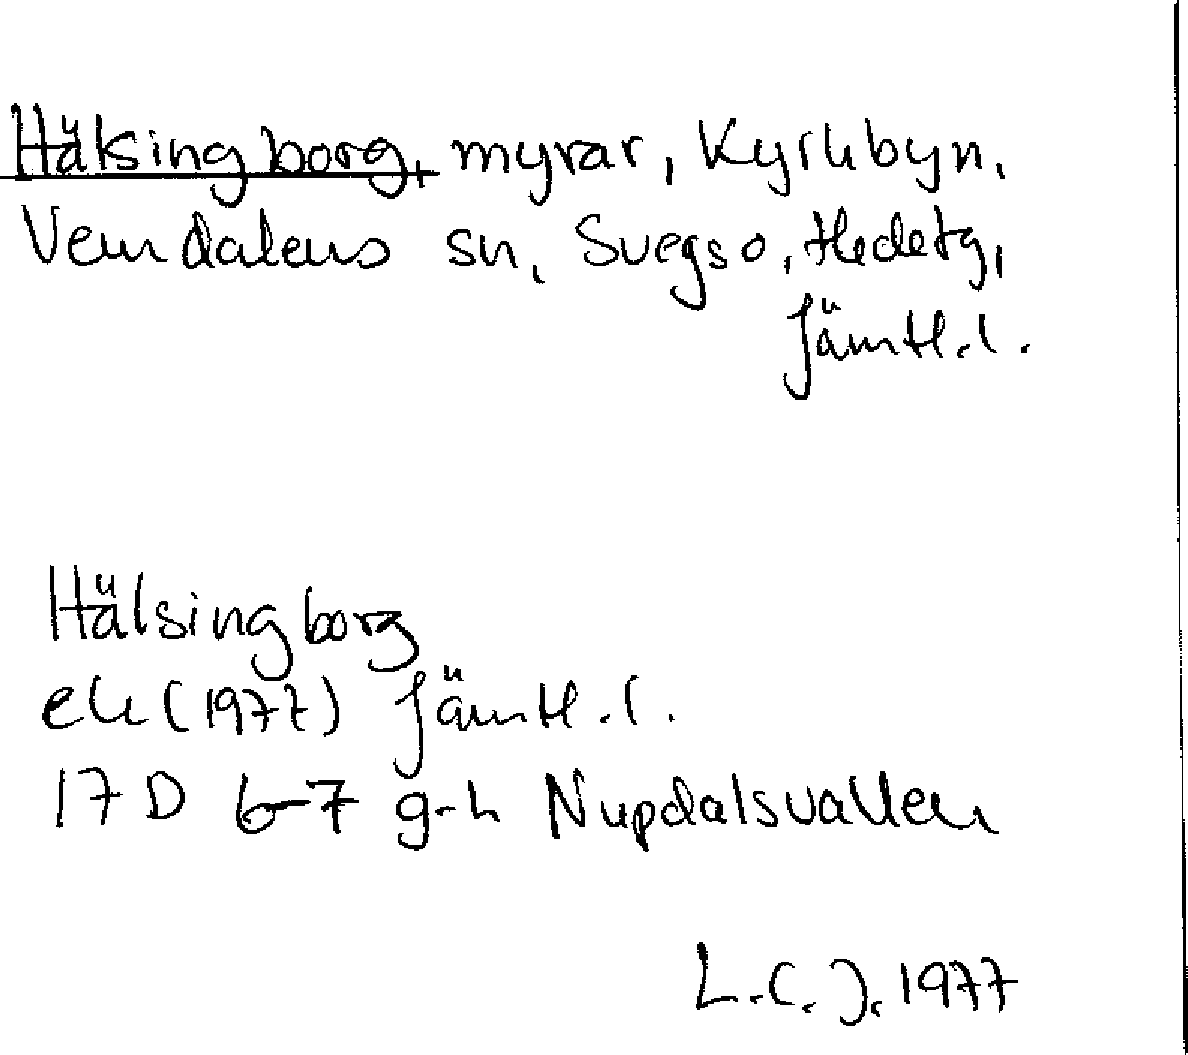 Hälsingborg, myrar, Kyrkbyn,
Vemdalens sn, Svegs o, Hedetg,
Jämtl.l.
Hälsingborg
ek (1977) Jämtl.l.
17D 6-7 g-h Nupdalsvallen
L.C.J. 1977